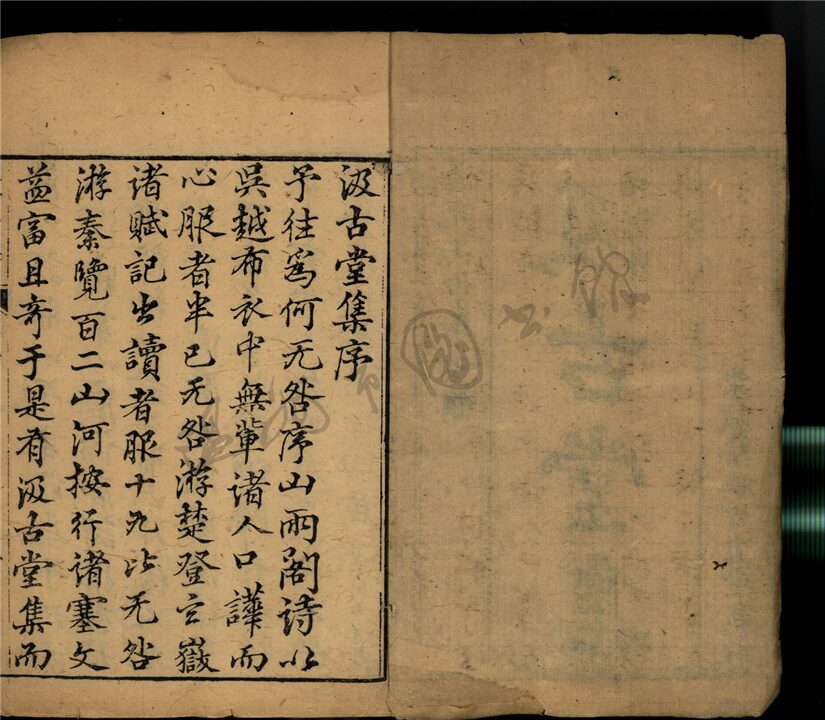 汲古堂集序
予往爲何无咎序山雨閣詩以
吳越布衣中無軰諸人口譁而
心服者半已无咎游楚登玄嶽
諸賦記出讀者服十九比无咎
游秦覽百二山河按行諸塞文
益富且奇于是有汲古堂集而